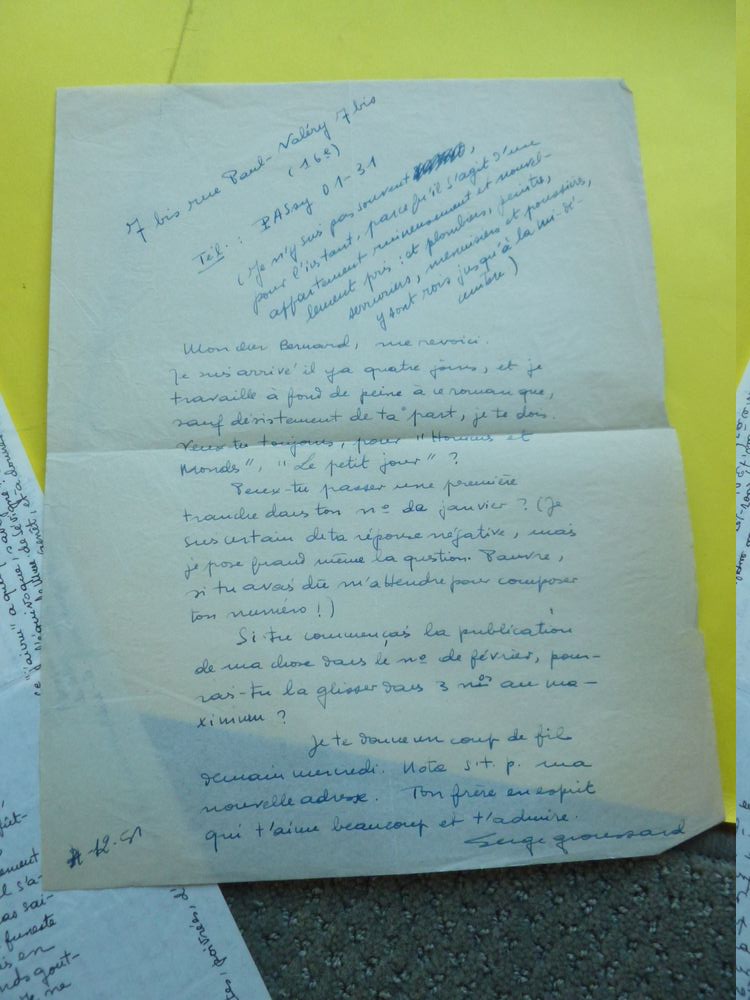 7 bis rue Paul-Valéry 7 bis
(16e)
Tél. : PASsy 01-31
(Je n'y suis pas souvent
pour l'instant, parce qu'il s'agit d'une
appartement ruineusement et nouvel-
lement pris : et plombiers, peintre,
serruriers, menuisiers et poussière,
y sont rois jusqu'à la mi-dé-
cembre)
Mon cher Bernard, me revoici.
Je suis arrivé il y a quatre jours, et je
travaille à fond de peine à ce roman que,
sauf désistement de ta part, je te dois.
Veux-tu toujours, pour "Hommes et
Mondes", "Le petit jour" ?
Peux-tu passer une première
tranche dans ton nº de janvier ? (Je
suis certain de ta réponse négative, mais
je pose quand même la question. Pauvre,
si tu avais dû m'attendre pour composer
ton numéro !)
Si tu commençais la publication
de ma chose dans le nº de février, pour-
rais-tu la glisser dans 3 nos au ma-
ximum ?
Je te donne un coup de fil
demain mercredi. Note s.t.p. ma
nouvelle adresse. Ton frère en esprit
qui t'aime beaucoup et t'admire.
Serge Groussard
4-12-51